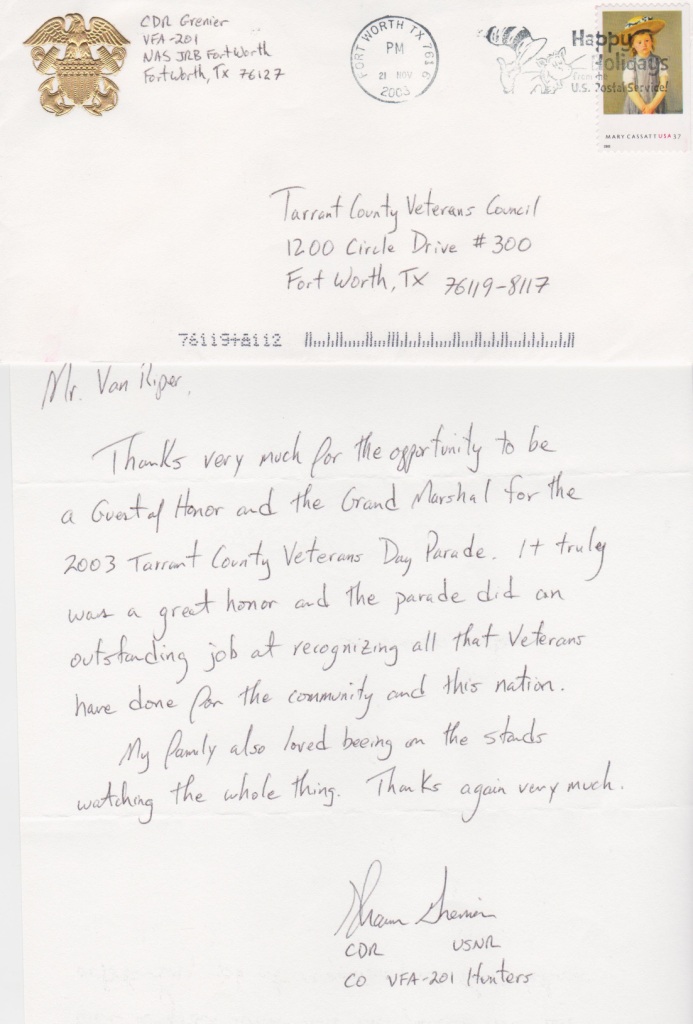 CDR Grenier
VFA-201
NAS JRB Fort Worth
Fort Worth, TX 76127
FORT WORTH TX 761
PM
21 NOV
2003
Happy
Holidays
from the
U.S. Postal Service!
MARY CASSATT USA 37
Tarrant County Veterans Council
1200 Circle Drive #300
Fort Worth, TX 76119-8117
76119+8112
Mr. Van Riper,
Thanks very much for the opportunity to be
a Guest of Honor and the Grand Marshal for the
2003 Tarrant County Veterans Day Parade. It truley
was a great honor and the parade did an
outstanding job at recognizing all that Veterans
have done for the community and this nation.
My family also loved beeing on the stands
watching the whole thing. Thanks again very much.
CDR USNR
CO VFA-201 Hunters